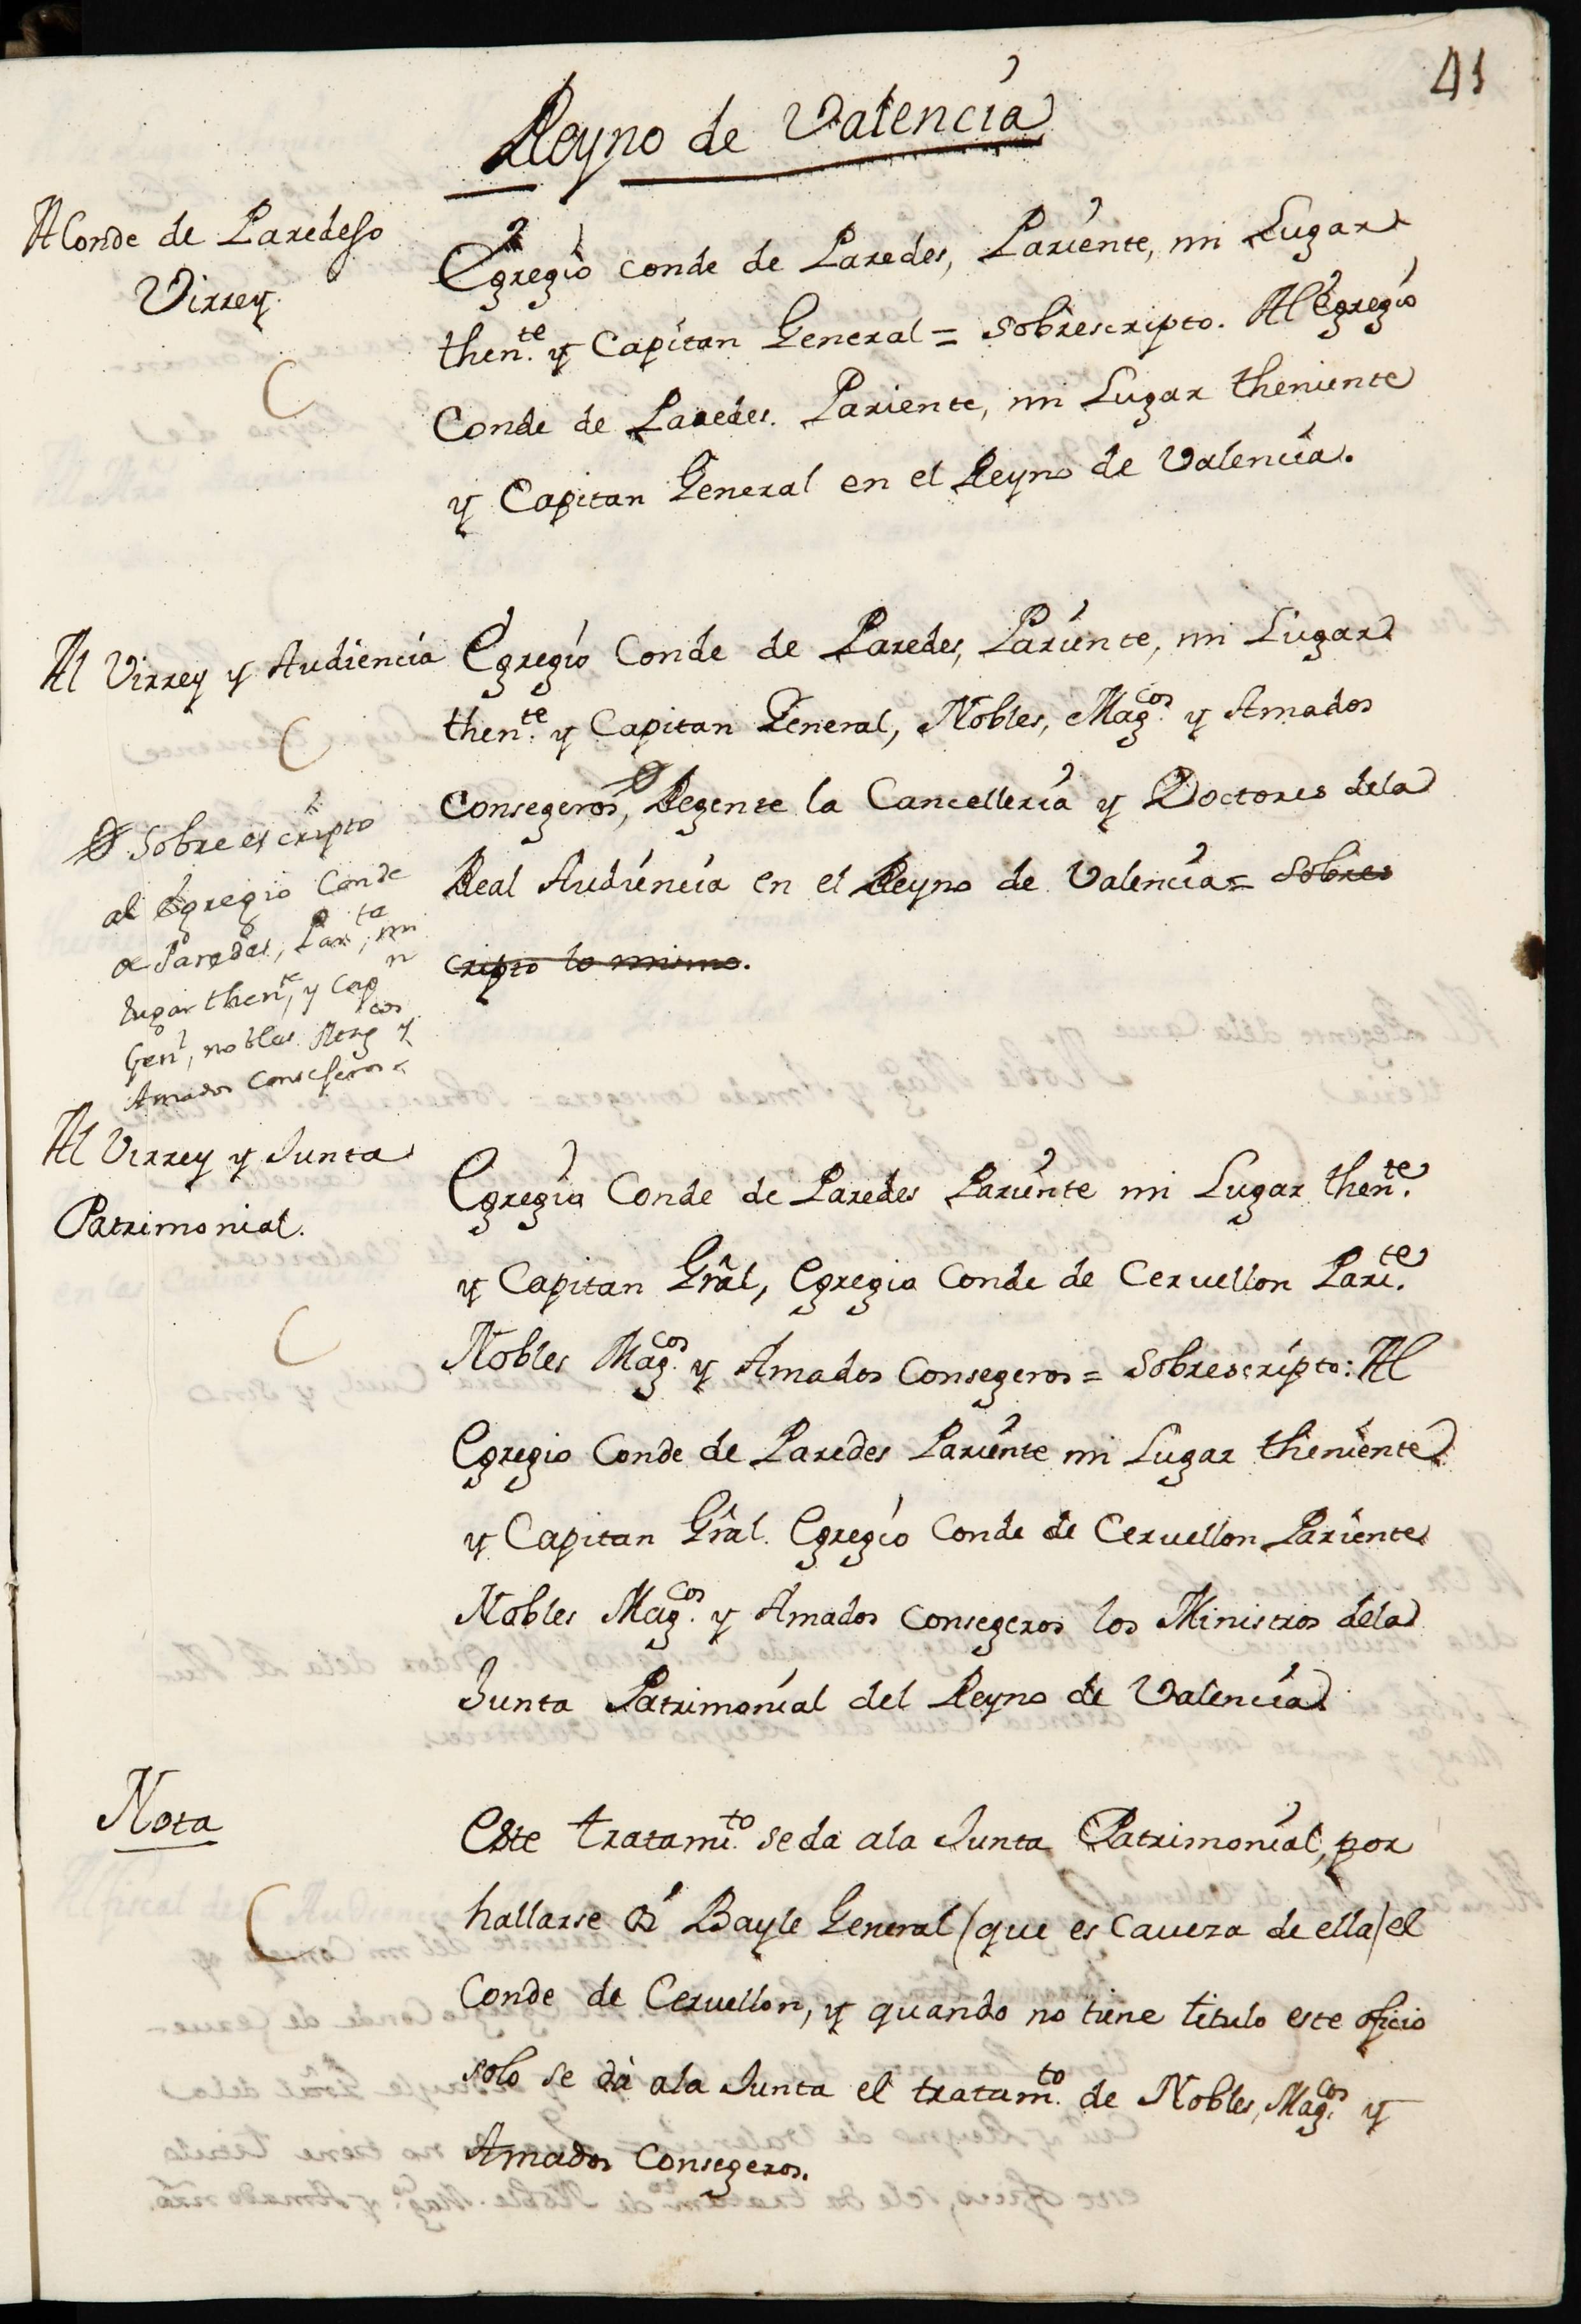 41
Reyno de Valencia
Al Conde de Paredes
Virrey.
Egregio Conde de Paredes, Pariente, mi Lugar
then.te y Capitan General = Sobrescripto. Al Egregio
Conde de Paredes. Pariente, mi Lugar theniente
y Capitan General en el Reyno de Valencia.
Al Virrey y Audiencia
Egregio Conde de Paredes, Pariente, mi Lugar
then.te y Capitan General, Nobles, Mag.cos y Amados
Consegeros, Regente la Cancelleria y Doctores dela
Real Audiencia en el Reyno de Valencia = Sobres
cripto lo mismo.
Sobreescripto
al Egregio Conde
de Paredes, Par.te, mi
lugar then.te, y Cap.n
Gen.l, nobles Mag.cos y
Amados Conseseros
Al Virrey y Junta
Patrimonial.
Egregio Conde de Paredes Pariente mi Lugar then.te
y Capitan Grâl, Egregio Conde de Cervellon Pari.te
Nobles Mag.cos y Amados Consegeros = Sobrescripto: Al
Egregio Conde de Paredes Pariente mi Lugar theniente
y Capitan Grâl. Egregio Conde de Cervellon Pariente
Nobles Mag.cos y Amados Consegeros los Ministros dela
Junta Patrimonial del Reyno de Valencia
Nota
Este tratami.to se da ala Junta Patrimonial, por
hallarse Bayle General (que es Caveza de ella) el
Conde de Cervellon, y quando no tiene titulo este oficio
solo se dà ala Junta el tratam.to de Nobles, Mag.cos y
Amados Consegeros.